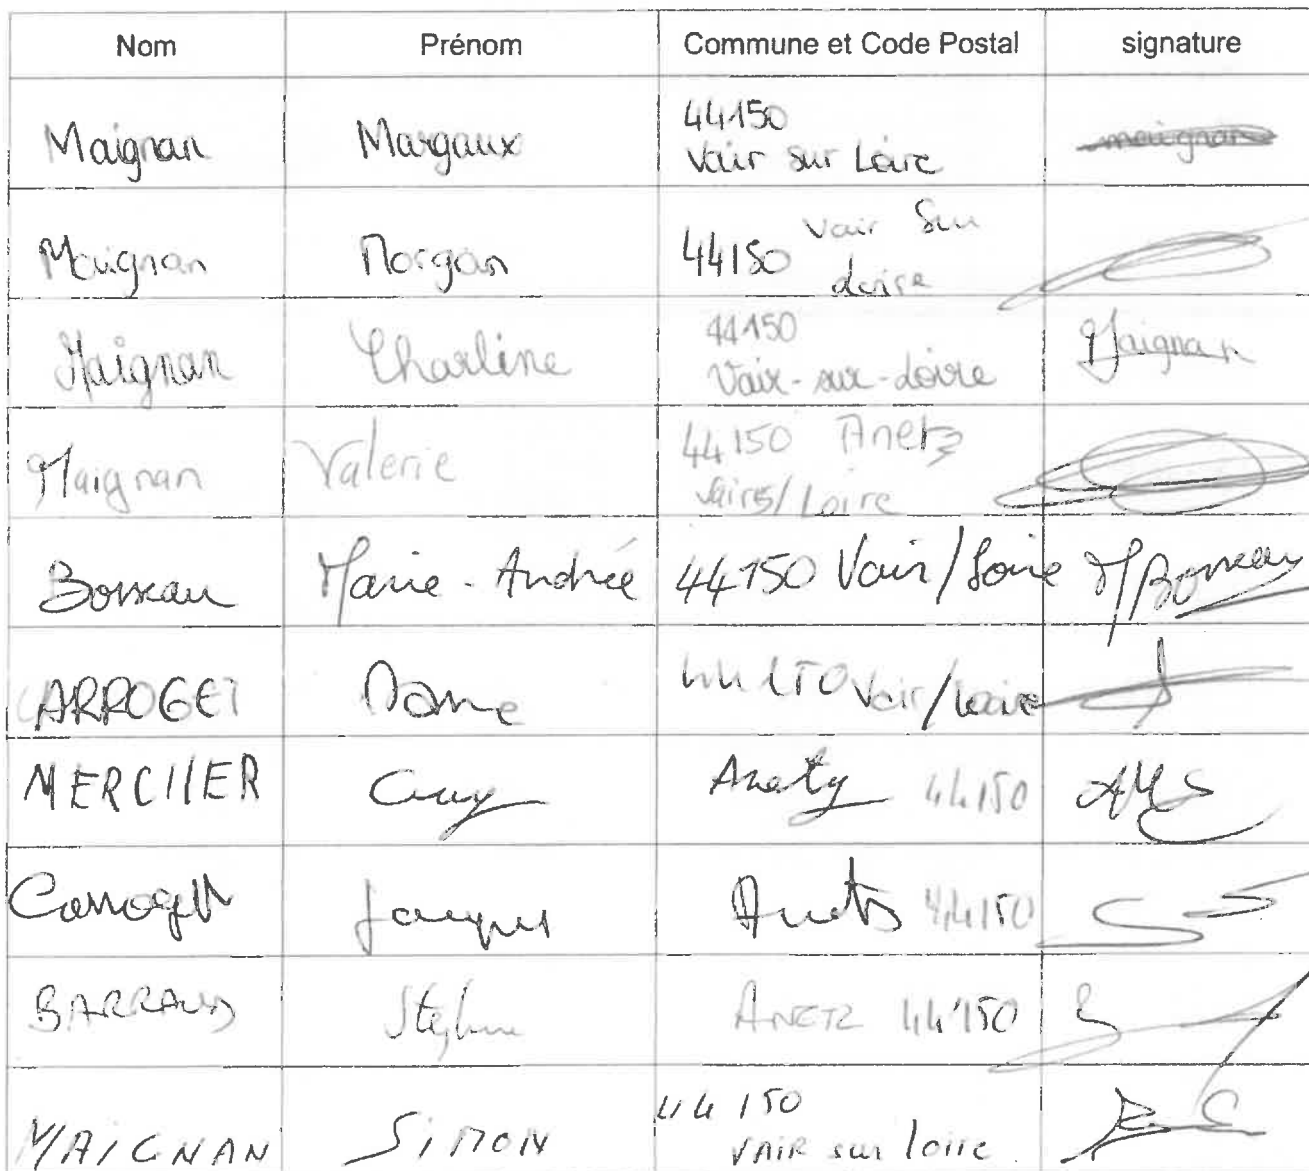 Nom Prénom Commune et Code Postal signature
Maignan Margaux 44150
Vair sur Loire maignan
Maignan Morgan 44150 Vair Sur
Loire
Maignan Charline 44150
Vair-sur-Loire Maignan
Maignan Valerie 44150 Anetz
Vair s/ Loire
Marie-Andrée 44150 Vair/Loire
ARROGET 44150 Vair/Loire
MERCIIER Guy Anetz 44150
Jacques Anetz 44150
BARRAUD Stephane ANETZ 44150
MAIGNAN SIMON 44150
VAIR sur loire